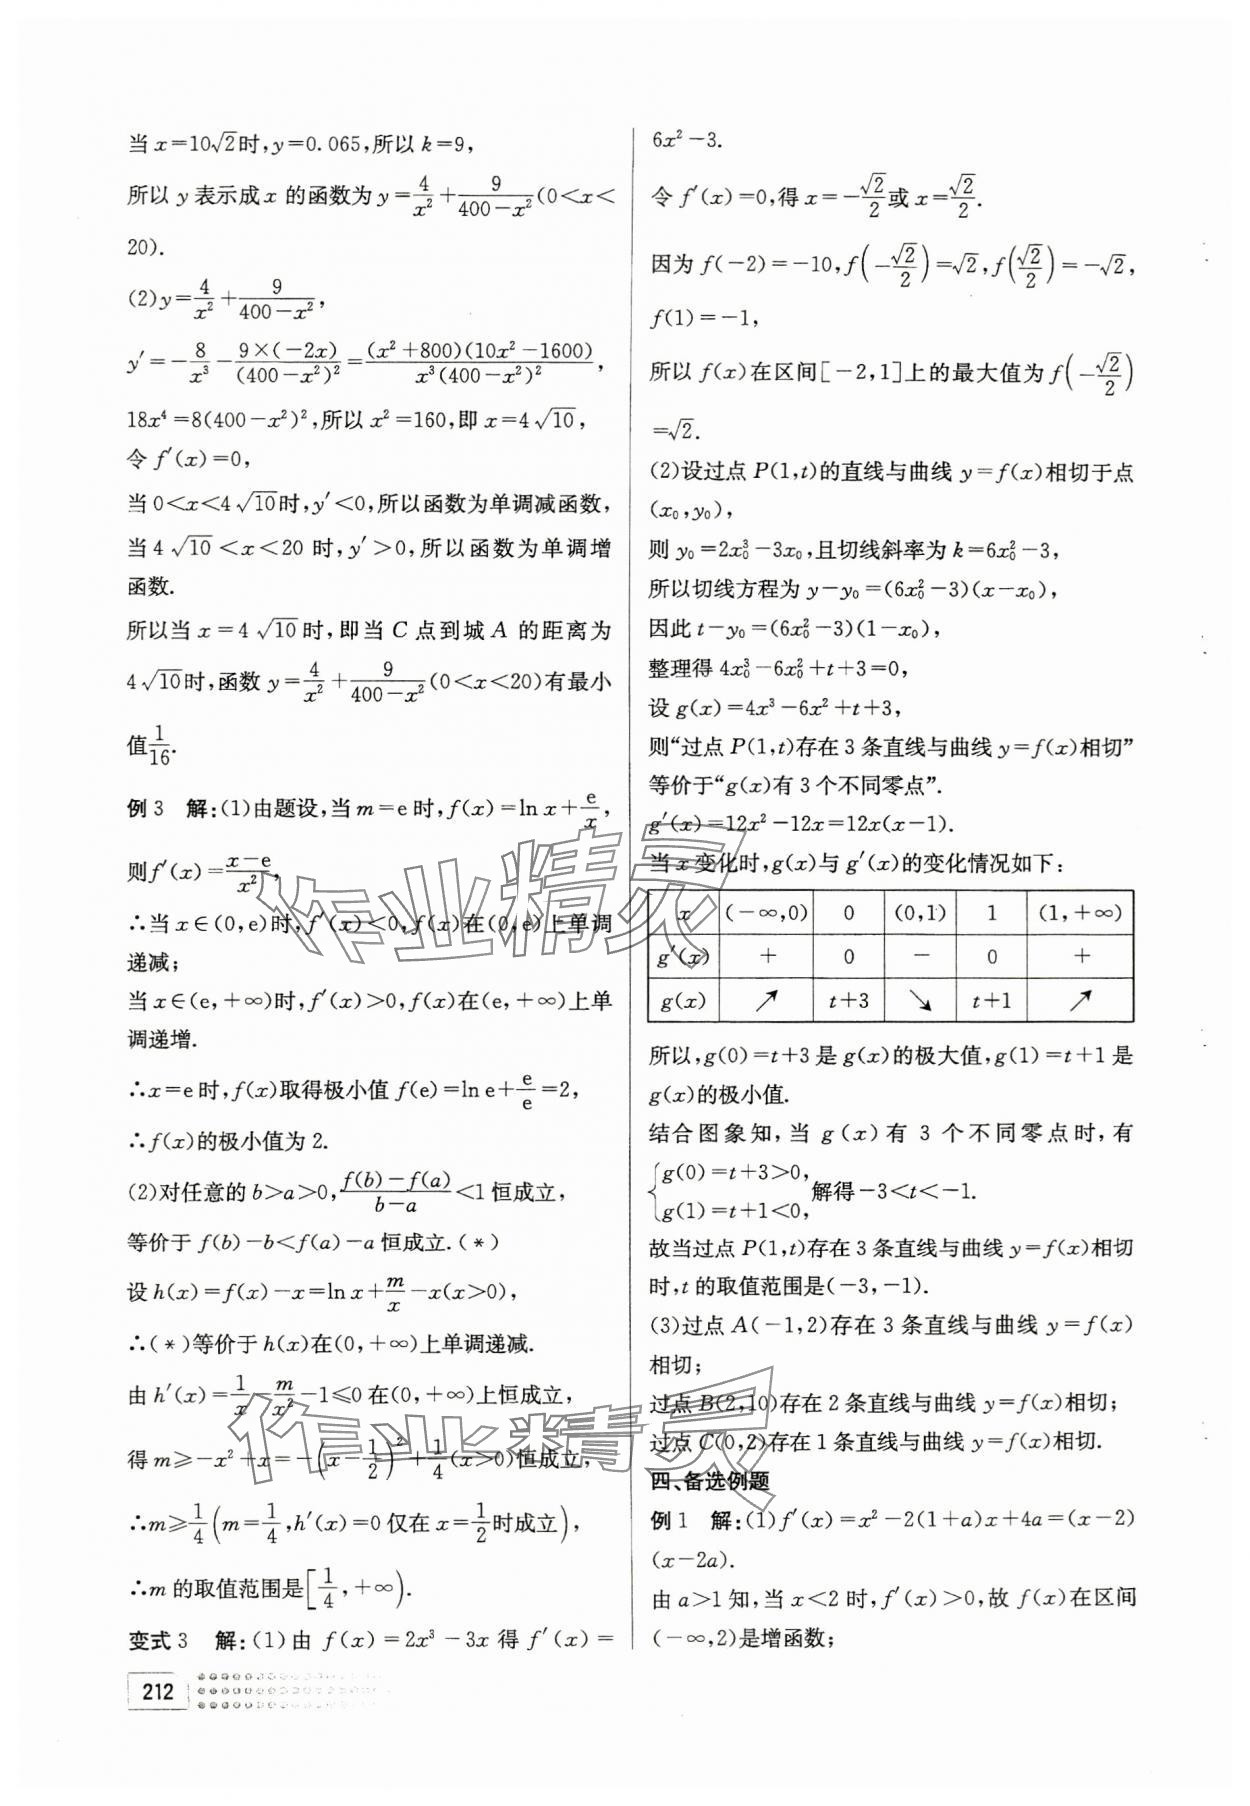 当 x=10√2时,y=0.065,所以 k=9,
所以 y 表示成 x 的函数为 y=4/x²+9/(400-x²)(0<x<
20).
(2)y=4/x²+9/(400-x²),
y′=-8/x³-9×(-2x)/(400-x²)²=(x²+800)(10x²-1600)/x³(400-x²)²,
18x⁴=8(400-x²)²,所以 x²=160,即 x=4√10,
令 f′(x)=0,
当 0<x<4√10时,y′<0,所以函数为单调减函数,
当 4√10<x<20 时,y′>0,所以函数为单调增
函数.
所以当 x=4√10时,即当 C 点到城 A 的距离为
4√10时,函数 y=4/x²+9/(400-x²)(0<x<20)有最小
值1/16.
例 3 解:(1)由题设,当 m=e 时,f(x)=ln x+e/x,
则f′(x)=(x-e)/x²,
∴当 x∈(0,e)时,f′(x)<0,f(x)在(0,e)上单调
递减;
当 x∈(e,+∞)时,f′(x)>0,f(x)在(e,+∞)上单
调递增.
∴x=e 时,f(x)取得极小值 f(e)=ln e+e/e=2,
∴f(x)的极小值为 2.
(2)对任意的 b>a>0,(f(b)-f(a))/(b-a)<1 恒成立,
等价于 f(b)-b<f(a)-a 恒成立.(*)
设 h(x)=f(x)-x=ln x+m/x-x(x>0),
∴(*)等价于 h(x)在(0,+∞)上单调递减.
由 h′(x)=1/x-m/x²-1≤0 在(0,+∞)上恒成立,
得 m≥-x²+x=-(x-1/2)²+1/4(x>0)恒成立,
∴m≥1/4(m=1/4,h′(x)=0 仅在 x=1/2时成立),
∴m 的取值范围是[1/4,+∞).
变式 3 解:(1)由 f(x)=2x³-3x 得 f′(x)=
212
6x²-3.
令 f′(x)=0,得 x=-√2/2或 x=√2/2.
因为 f(-2)=-10,f(-√2/2)=√2,f(√2/2)=-√2,
f(1)=-1,
所以 f(x)在区间[-2,1]上的最大值为 f(-√2/2)
=√2.
(2)设过点 P(1,t)的直线与曲线 y=f(x)相切于点
(x₀,y₀),
则 y₀=2x₀³-3x₀,且切线斜率为 k=6x₀²-3,
所以切线方程为 y-y₀=(6x₀²-3)(x-x₀),
因此 t-y₀=(6x₀²-3)(1-x₀),
整理得 4x₀³-6x₀²+t+3=0,
设 g(x)=4x³-6x²+t+3,
则“过点 P(1,t)存在 3 条直线与曲线 y=f(x)相切”
等价于“g(x)有 3 个不同零点”.
g′(x)=12x²-12x=12x(x-1).
当 x 变化时,g(x)与 g′(x)的变化情况如下:
x (-∞,0) 0 (0,1) 1 (1,+∞)
g′(x) + 0 - 0 +
g(x) ↗ t+3 ↘ t+1 ↗
所以,g(0)=t+3 是 g(x)的极大值,g(1)=t+1 是
g(x)的极小值.
结合图象知,当 g(x)有 3 个不同零点时,有
{g(0)=t+3>0,
g(1)=t+1<0, 解得-3<t<-1.
故当过点 P(1,t)存在 3 条直线与曲线 y=f(x)相切
时,t 的取值范围是(-3,-1).
(3)过点 A(-1,2)存在 3 条直线与曲线 y=f(x)
相切;
过点 B(2,10)存在 2 条直线与曲线 y=f(x)相切;
过点 C(0,2)存在 1 条直线与曲线 y=f(x)相切.
四、备选例题
例 1 解:(1)f′(x)=x²-2(1+a)x+4a=(x-2)
(x-2a).
由 a>1 知,当 x<2 时,f′(x)>0,故 f(x)在区间
(-∞,2)是增函数;
作业精灵
作业精灵